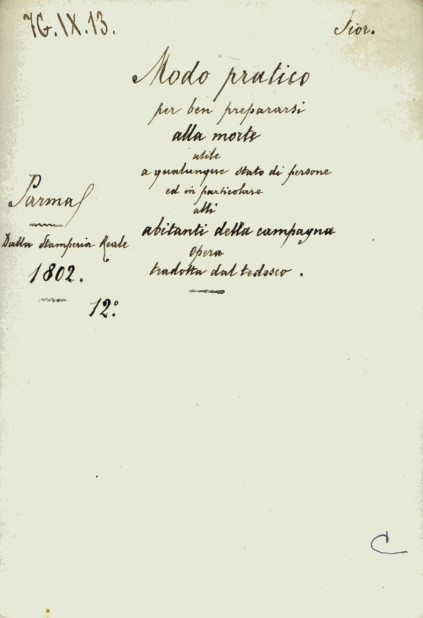 7G.IX.13.
Fior.
Modo pratico
per ben prepararsi
alla morte
utile
a qualunque stato di persone
ed in particolare
alli
abitanti della campagna
opera
tradotta dal tedesco.
Parma
Dalla Stamperia Reale
1802.
12°.
C